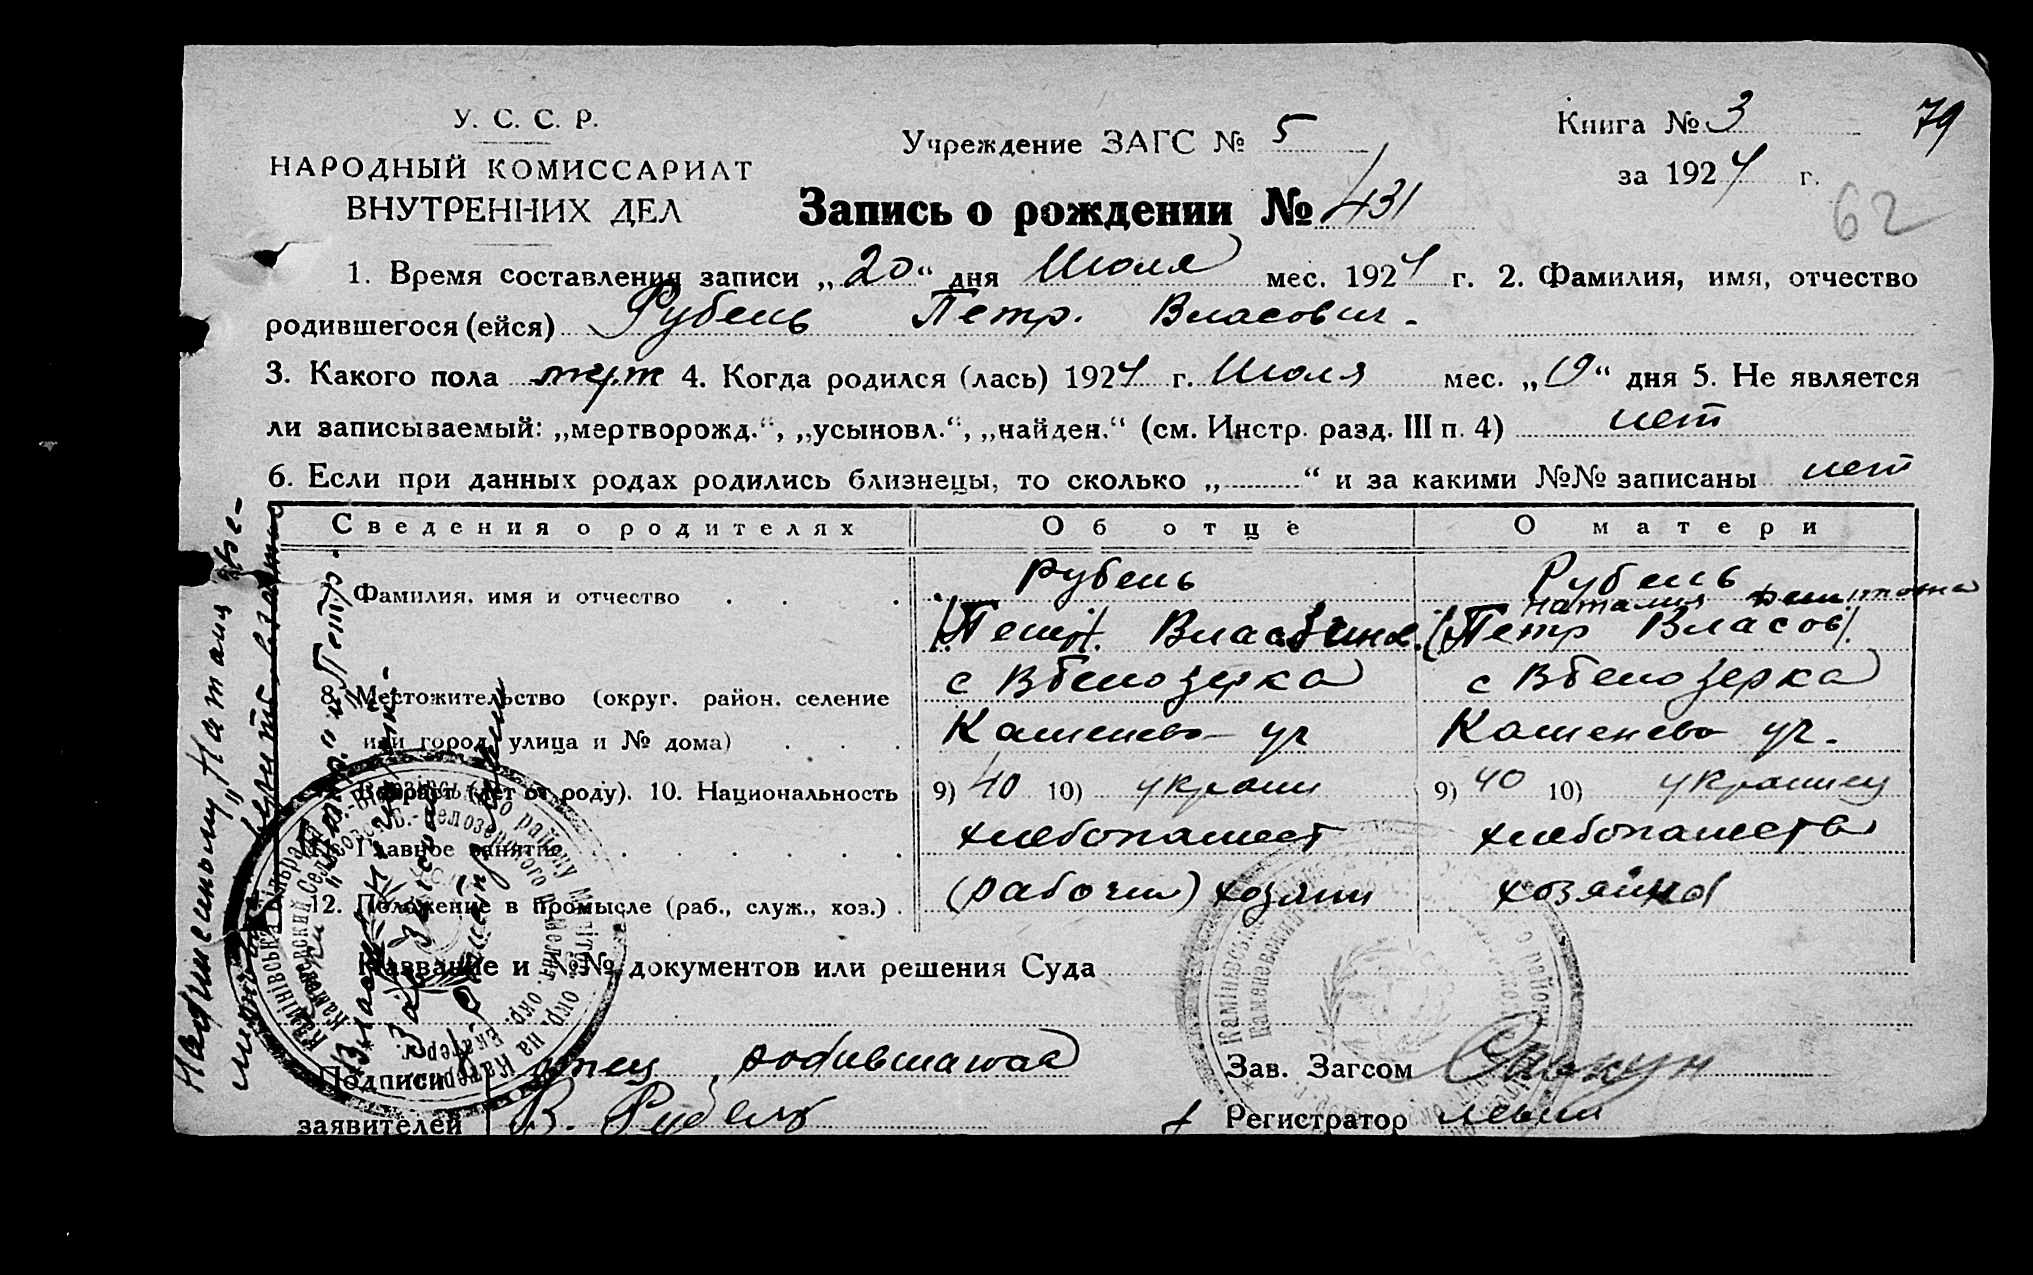 У. С. С. Р.
НАРОДНЫЙ КОМИССАРИАТ
ВНУТРЕННИХ ДЕЛ
Учреждение ЗАГС № 5
Книга № 3
79
за 1924 г.
62
Запись о рождении № 431
1. Время составления записи „20“ дня Июля мес. 1924 г. 2. Фамилия, имя, отчество
родившегося (ейся) Рубель Петр. Власович.
3. Какого пола муж 4. Когда родился (лась) 1924 г. Июля мес. „19“ дня 5. Не является
ли записываемый: „мертворожд.“, „усыновл.“, „найден.“ (см. Инстр. разд. III п. 4) нет
6. Если при данных родах родились близнецы, то сколько „ “ и за какими №№ записаны нет
Сведения о родителях Об отце О матери
Фамилия, имя и отчество Рубель Рубель
Наталия
Петр Влас Петр Власов
8. Местожительство (округ. район. селение с В белозерка с В белозерка
или город, улица и № дома) Каменево уч Каменево уч.
Возраст (лет от роду). 10. Национальность 9) 40 10) украин 9) 40 10) украинец
11. Главное занятие хлебопашест хлебопашества
12. Положение в промысле (раб., служ., хоз.) (рабочий) хозяин хозяйка
Название и №№ документов или решения Суда
Подписи отец родившагося Зав. Загсом
заявителей В. Рубель Регистратор
Надписаному „Наталия